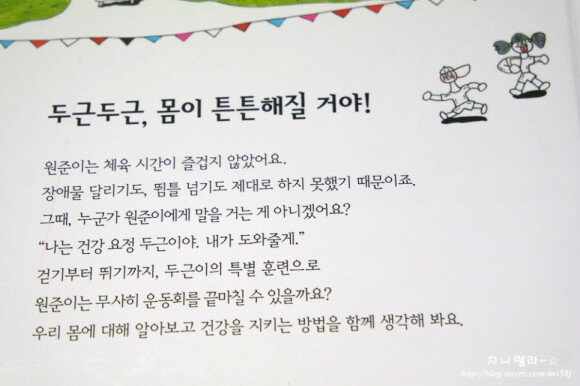 두근두근, 몸이 튼튼해질 거야!
원준이는 체육 시간이 즐겁지 않았어요.
장애물 달리기도, 뜀틀 넘기도 제대로 하지 못했기 때문이죠.
그때, 누군가 원준이에게 말을 거는 게 아니겠어요?
“나는 건강 요정 두근이야. 내가 도와줄게.”
걷기부터 뛰기까지, 두근이의 특별 훈련으로
원준이는 무사히 운동회를 끝마칠 수 있을까요?
우리 몸에 대해 알아보고 건강을 지키는 방법을 함께 생각해 봐요.
지니텔라~☆